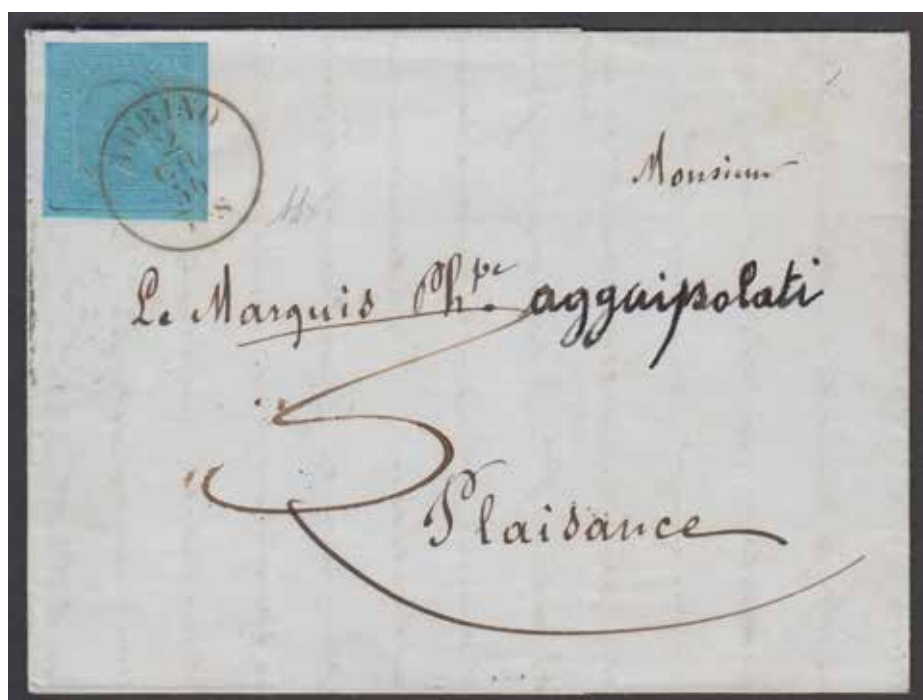 TORINO
Monsieur
Le Marquis Ph.pe aggaipolati
Plaisance